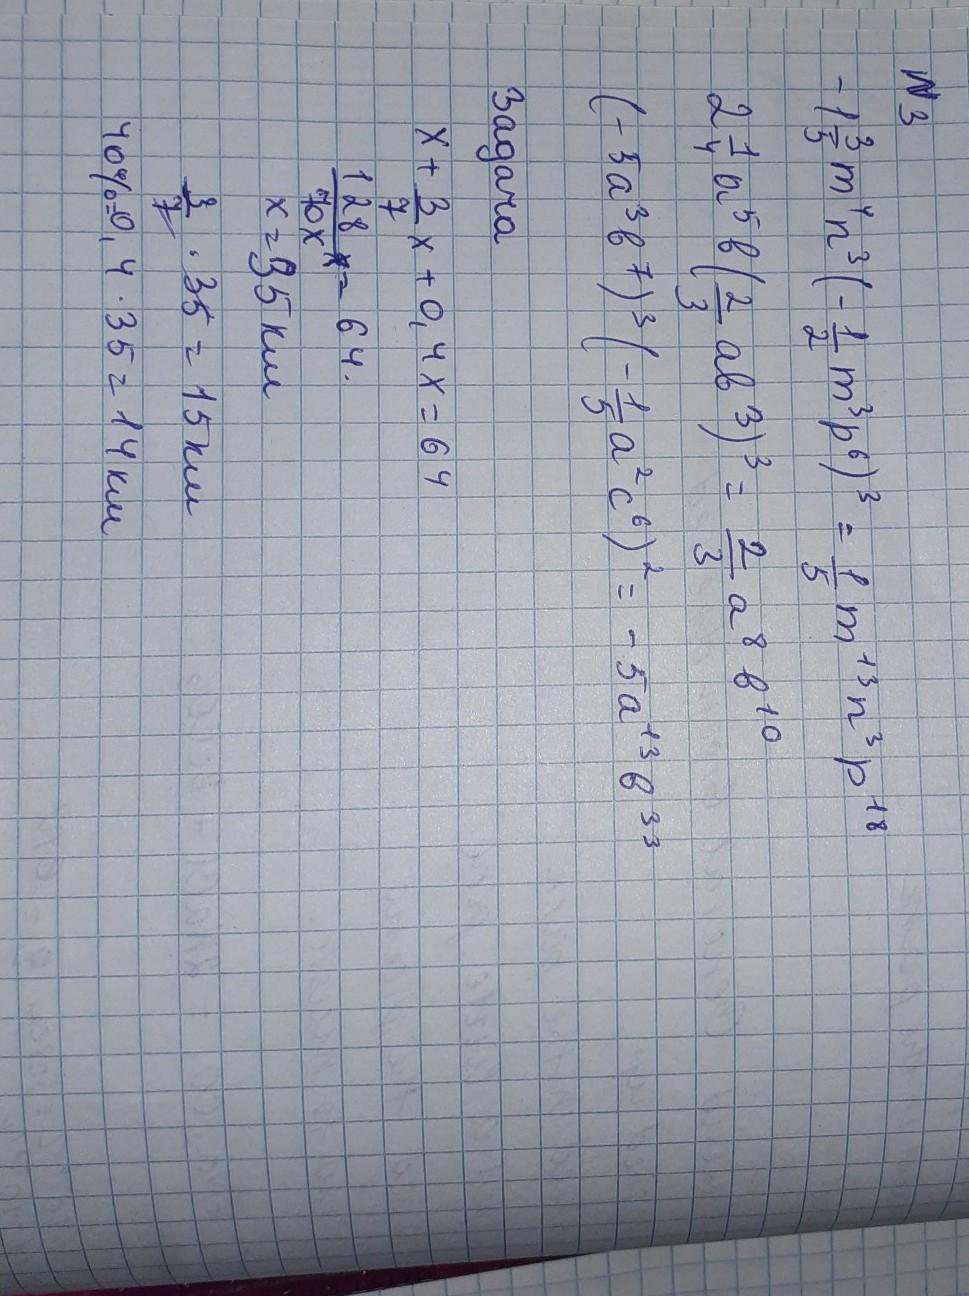 N3
-1 3/5 m⁴n³(-1/2 m³p⁶)³ = 1/5 m¹³n³p¹⁸
2 1/4 a⁵b(2/3 ab³)³ = 2/3 a⁸b¹⁰
(-5a³b⁷)³(-1/5 a²c⁶)² = -5a¹³b³³
Задача
x + 3/7 x + 0,4x = 64
128/70x = 64.
x = 35 км
3/7 · 35 = 15 км
40% = 0,4 · 35 = 14 км